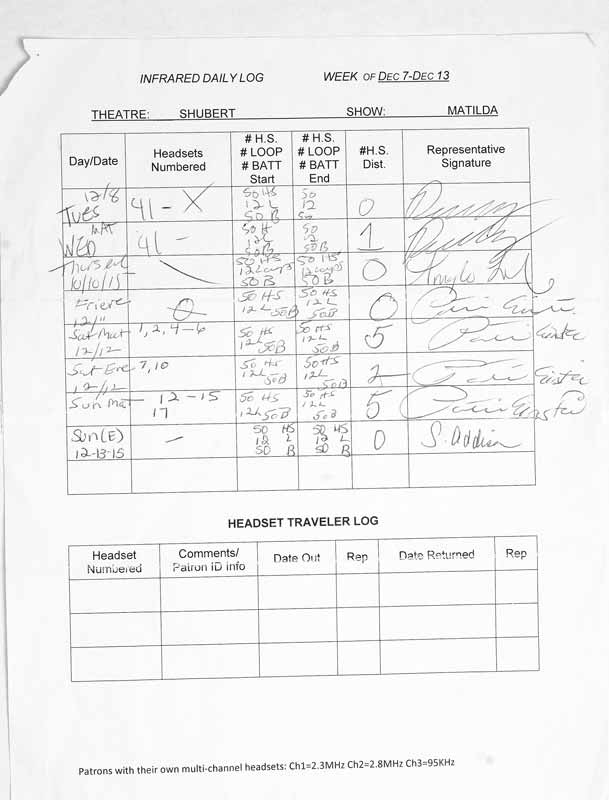 INFRARED DAILY LOG WEEK OF DEC 7-DEC 13
THEATRE: SHUBERT SHOW: MATILDA
Day/Date Headsets Numbered # H.S. # LOOP # BATT Start # H.S. # LOOP # BATT End #H.S. Dist. Representative Signature
12/8 TUES 41 - X 50 HS 12 L 50 B 50 12 50 0
MAT WED 41 - 50 H 12L 50B 50 12 50B 1
10/10/15 50 HS 50 B 50 HS 50 B 0
12/11 50 HS 12L 50B 50 HS 12L 50B 0
Sat Mat 12/12 1, 2, 4-6 50 HS 12L 50B 50 HS 12L 50B 5
Sat Eve 12/12 7, 10 50 HS 12L 50B 50 HS 12L 50B 2
Sun Mat 12-15 17 50 HS 12L 50B 50 HS 12L 50B 5
Sun (E) 12-13-15 — 50 HS 12 L 50 B 50 HS 12 L 50 B 0 S. Addison
HEADSET TRAVELER LOG
Headset Numbered Comments/ Patron ID info Date Out Rep Date Returned Rep
Patrons with their own multi-channel headsets: Ch1=2.3MHz Ch2=2.8MHz Ch3=95KHz